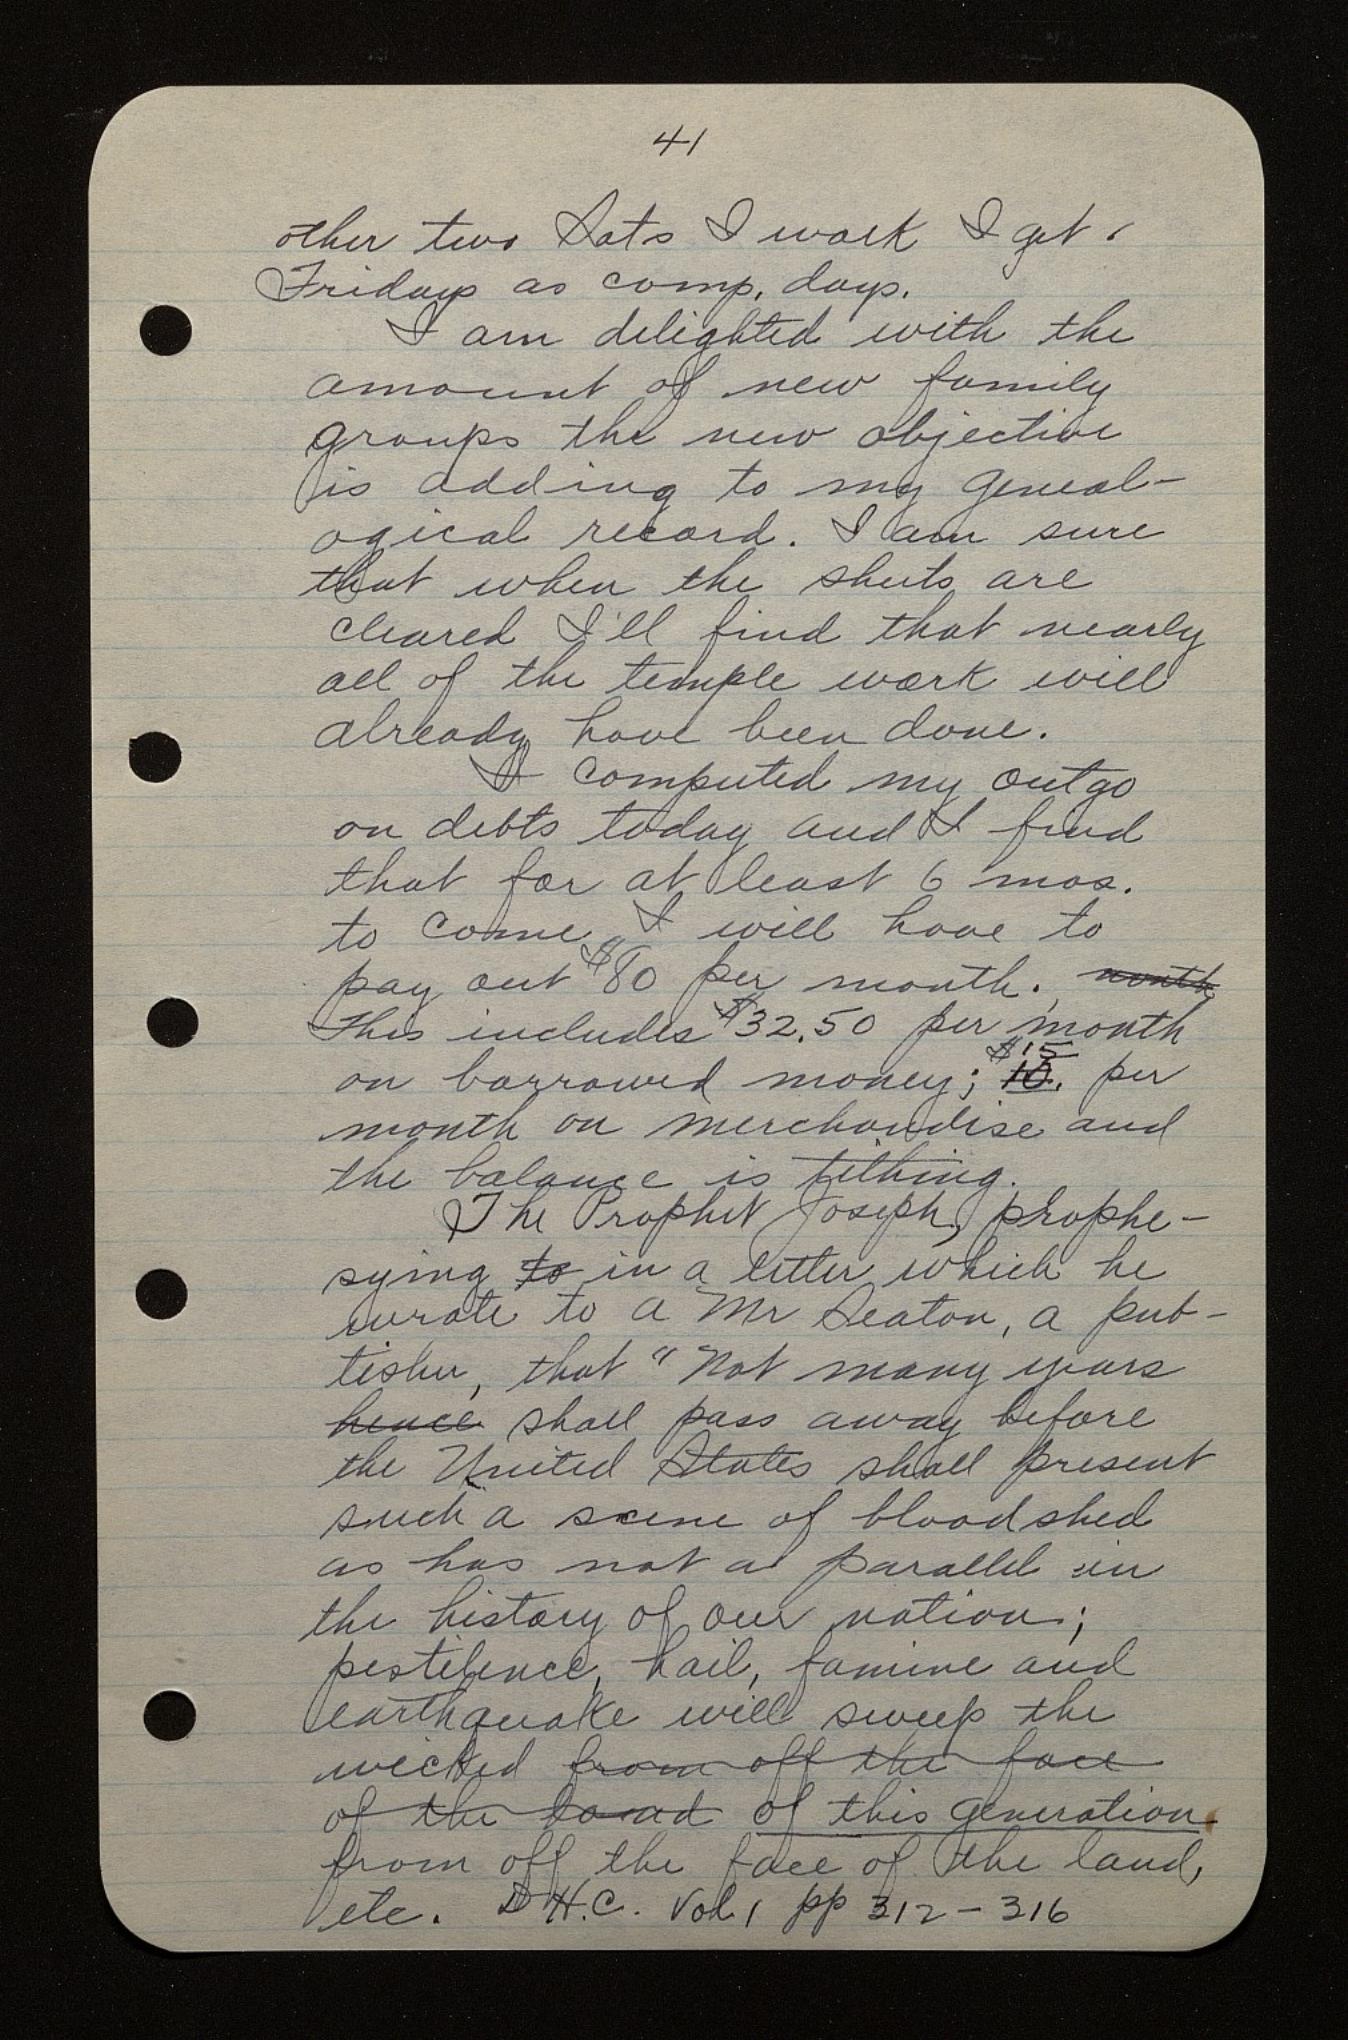 41
other two Sats I work I get
Fridays as comp. days.
I am delighted with the
amount of new family
groups the new objective
is adding to my geneal-
ogical record. I am sure
that when the sheets are
cleared I'll find that nearly
all of the temple work will
already have been done.
I computed my outgo
on debts today and I find
that for at least 6 mos.
to come I will have to
pay out $80 per month. month
This includes $32.50 per month
on borrowed money; $15 10. per
month on merchandise and
the balance is tithing.
The Prophet Joseph, prophe-
sying to in a letter which he
wrote to a Mr Seaton, a pub-
lisher, that "Not many years
hence shall pass away before
the United States shall present
such a scene of bloodshed
as has not a parallel in
the history of our nation;
pestilence, hail, famine and
earthquake will sweep the
wicked from off the face
of the land of this generation
from off the face of the land,
etc. D.H.C. Vol 1 pp 312-316